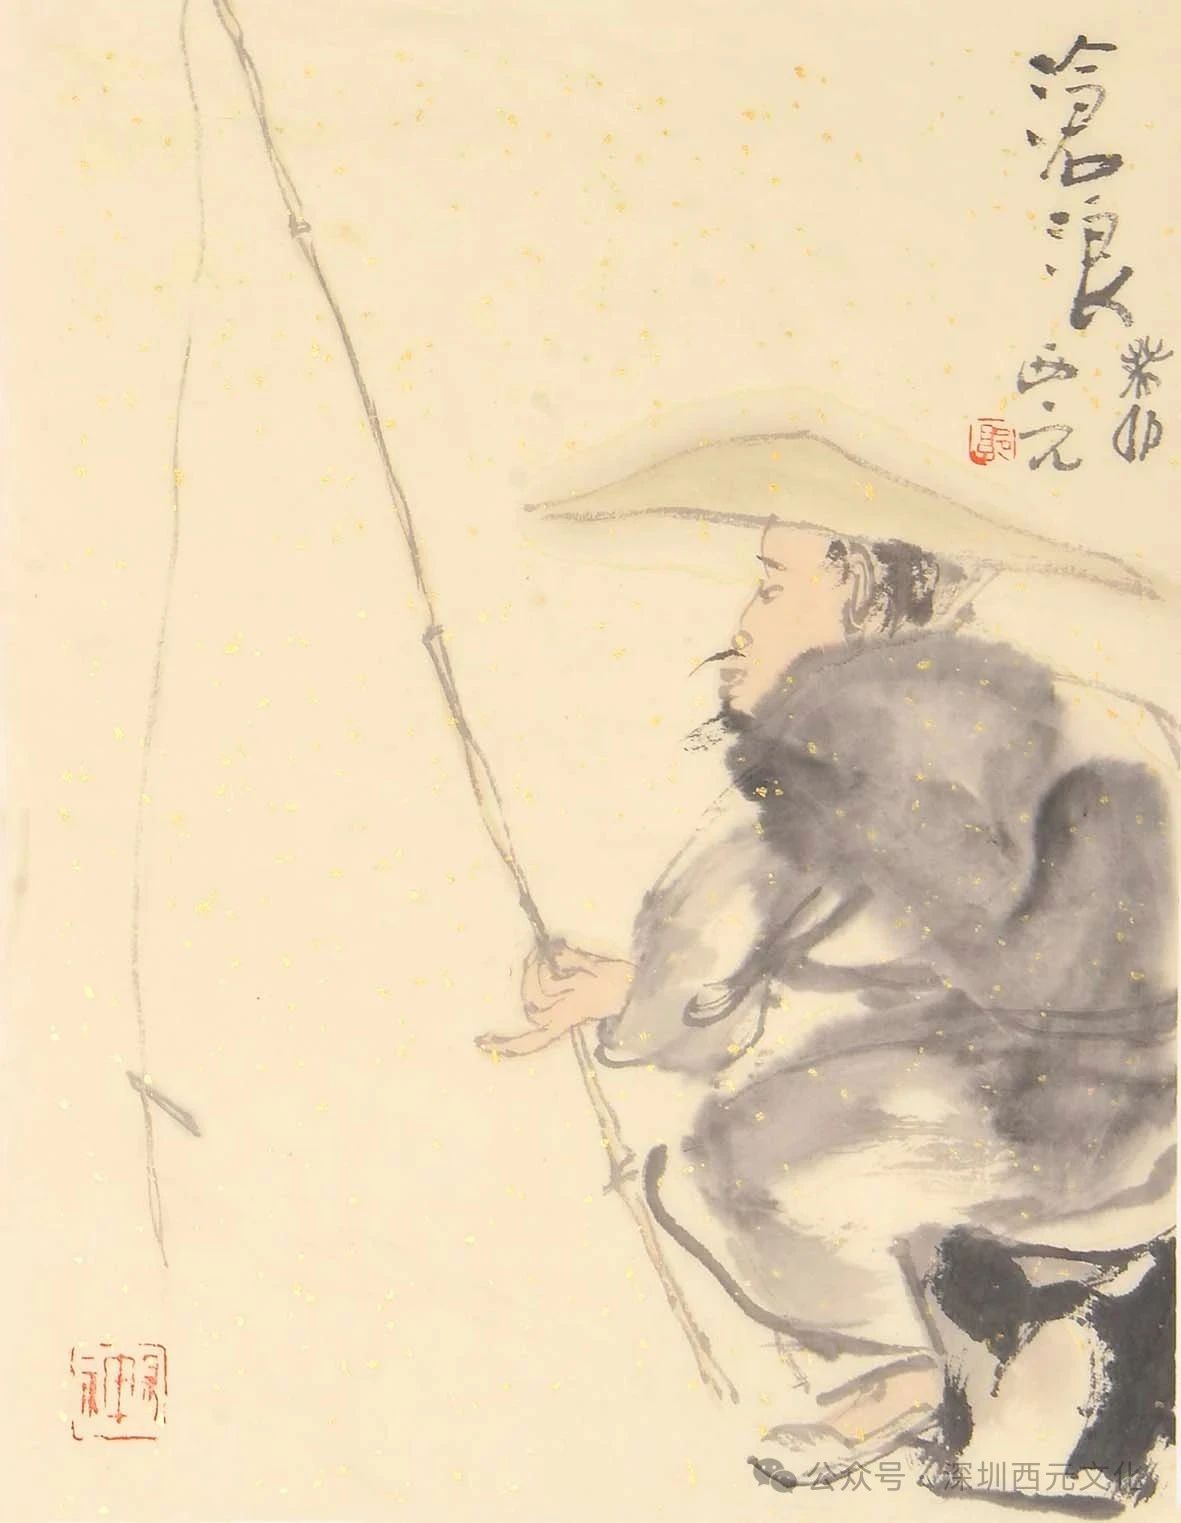 滄浪
癸卯
西元
公众号 · 深圳西元文化